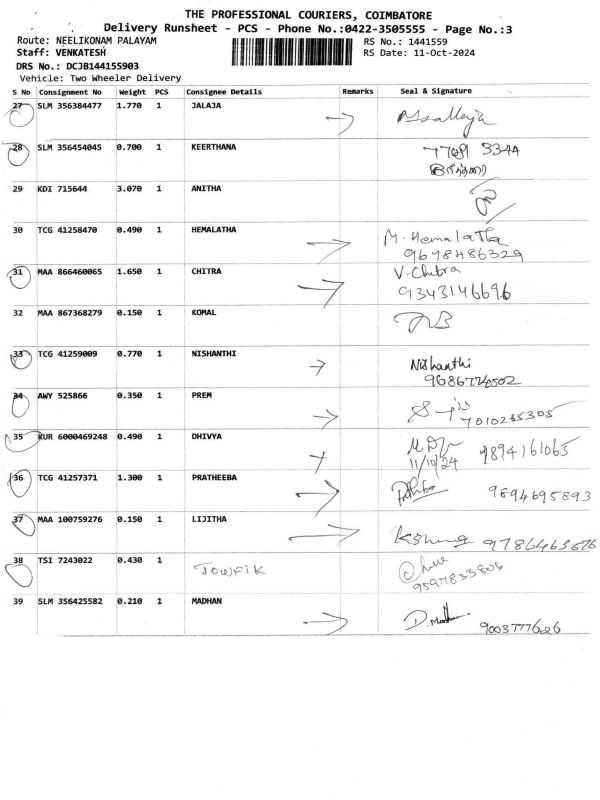 THE PROFESSIONAL COURIERS, COIMBATORE
Delivery Runsheet - PCS - Phone No.:0422-3505555 - Page No.:3
Route: NEELIKONAM PALAYAM
RS No.: 1441559
Staff: VENKATESH
RS Date: 11-Oct-2024
DRS No.: DCJB144155903
Vehicle: Two Wheeler Delivery
S No Consignment No Weight PCS Consignee Details Remarks Seal & Signature
27 SLM 356384477 1.770 1 JALAJA
28 SLM 356454045 0.700 1 KEERTHANA
29 KDI 715644 3.070 1 ANITHA
30 TCG 41258470 0.490 1 HEMALATHA M. Hemalatha
9678486329
31 MAA 866460065 1.650 1 CHITRA V. Chitra
9343146696
32 MAA 867368279 0.150 1 KOMAL
33 TCG 41259009 0.770 1 NISHANTHI Nishanthi
34 AWY 525866 0.350 1 PREM 7010265305
35 KUR 6000469248 0.490 1 DHIVYA 9894161065
11/10/24
36 TCG 41257371 1.300 1 PRATHEEBA 9894695893
37 MAA 100759276 0.150 1 LIJITHA
38 TSI 7243022 0.430 1 TOWFIK
39 SLM 356425582 0.210 1 MADHAN D. Madhan 9003777626